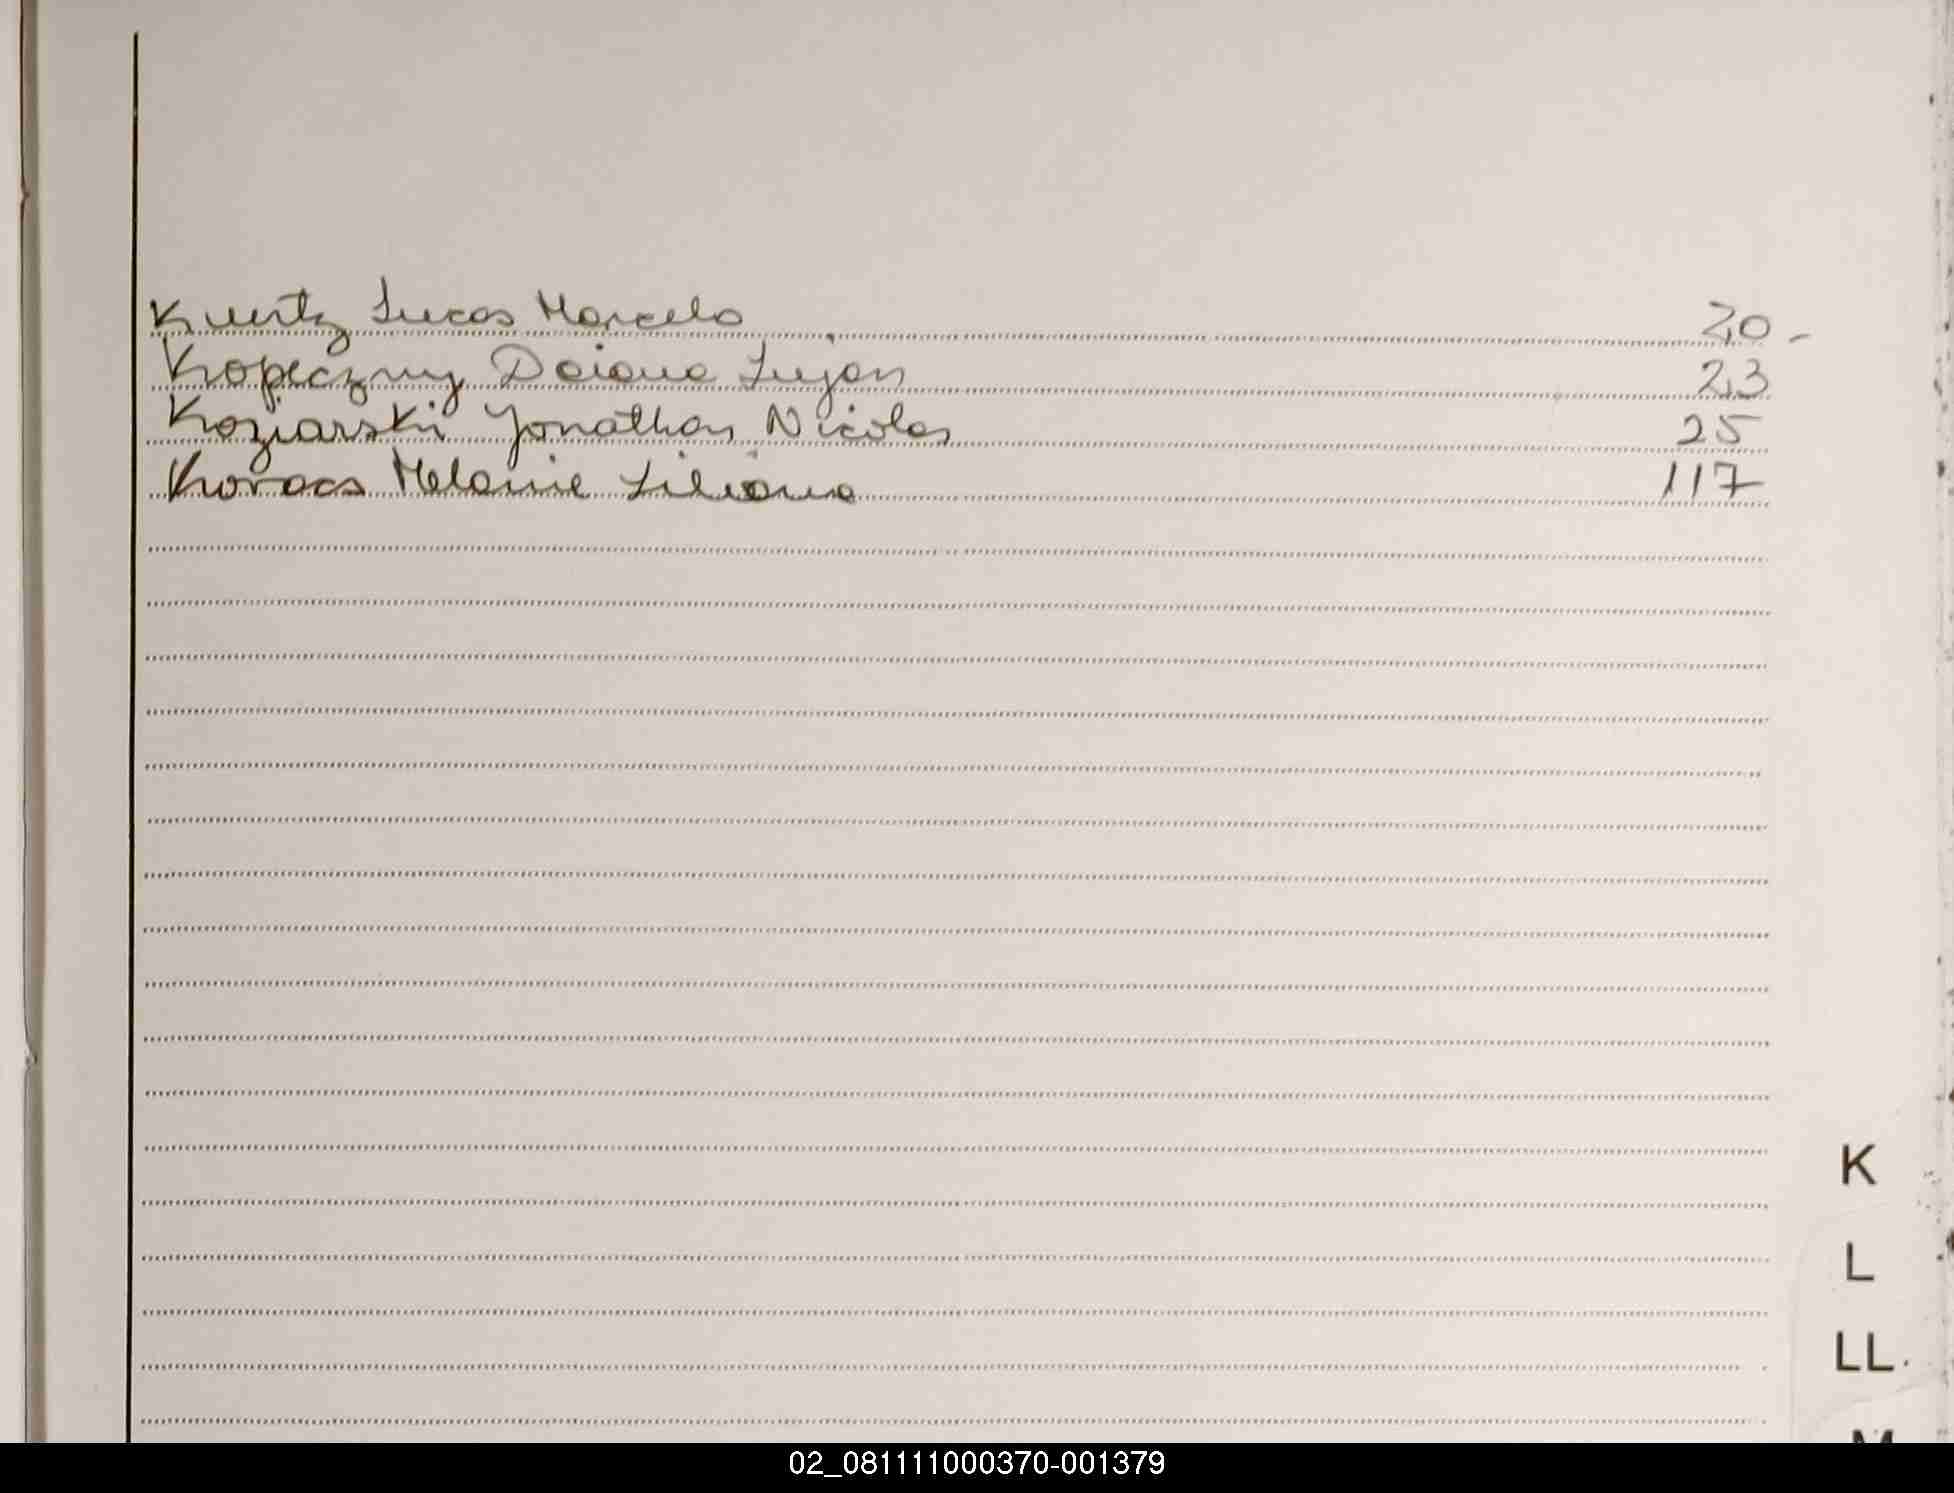 Kuertz Lucas Marcelo 20-
Kopeczny Daiana Lujan 23
Koziarski Jonathan Nicolas 25
Kovacs Melanie Liliana 117
K
L
LL
M
02_081111000370-001379